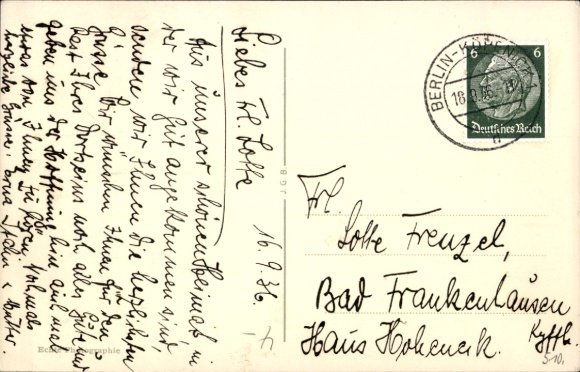 Liebes Frl. Lotte
16.9.36.
Aus unserer schönen Heimat, in
der wir gut angekommen sind,
senden wir Ihnen die herzlichsten
Grüsse. Wir wünschen Ihnen für den
Rest Ihres Dortseins noch alles Gute und
geben uns der Hoffnung hin, auch mal
etwas von Ihnen zu hören. Nochmals
herzliche Grüsse, Erna u. Mutter.
Echte Photographie
BERLIN-KÖPENICK
18.9.36
6 6
Deutsches Reich
Frl.
Lotte Frenzel,
Bad Frankenhausen
Kyffh.
Haus Hoheneck.